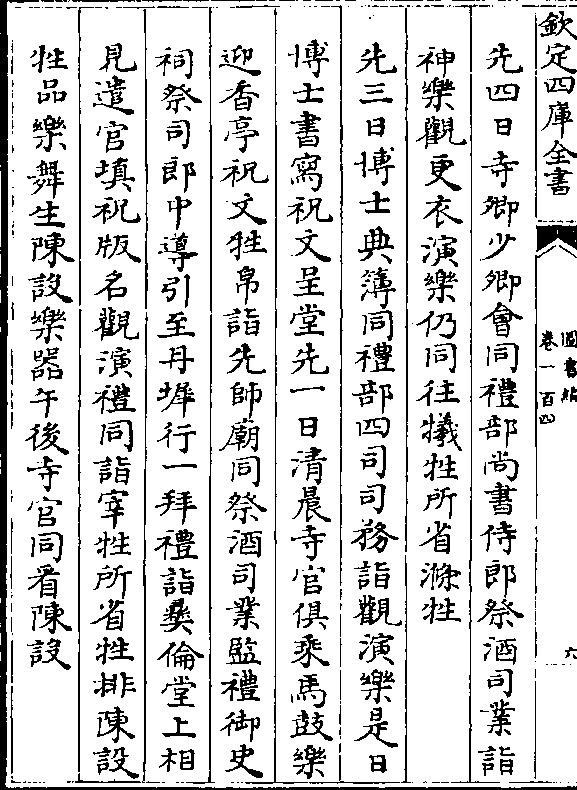 欽定四庫全書
圖書編
卷一百四
六
先四日寺卿少卿會同禮部尚書侍郎祭酒司業詣
神樂觀更衣演樂仍同往犧牲所省滌牲
先三日博士典簿同禮部四司司務詣觀演樂是日
博士書寫祝文呈堂先一日清晨寺官俱乘馬鼓樂
迎香亭祝文牲帛詣先師廟同祭酒司業監禮御史
祠祭司郎中導引至丹墀行一拜禮詣彞倫堂上相
見遣官填祝版名觀演禮同詣宰牲所省牲排陳設
牲品樂舞生陳設樂器午後寺官同看陳設